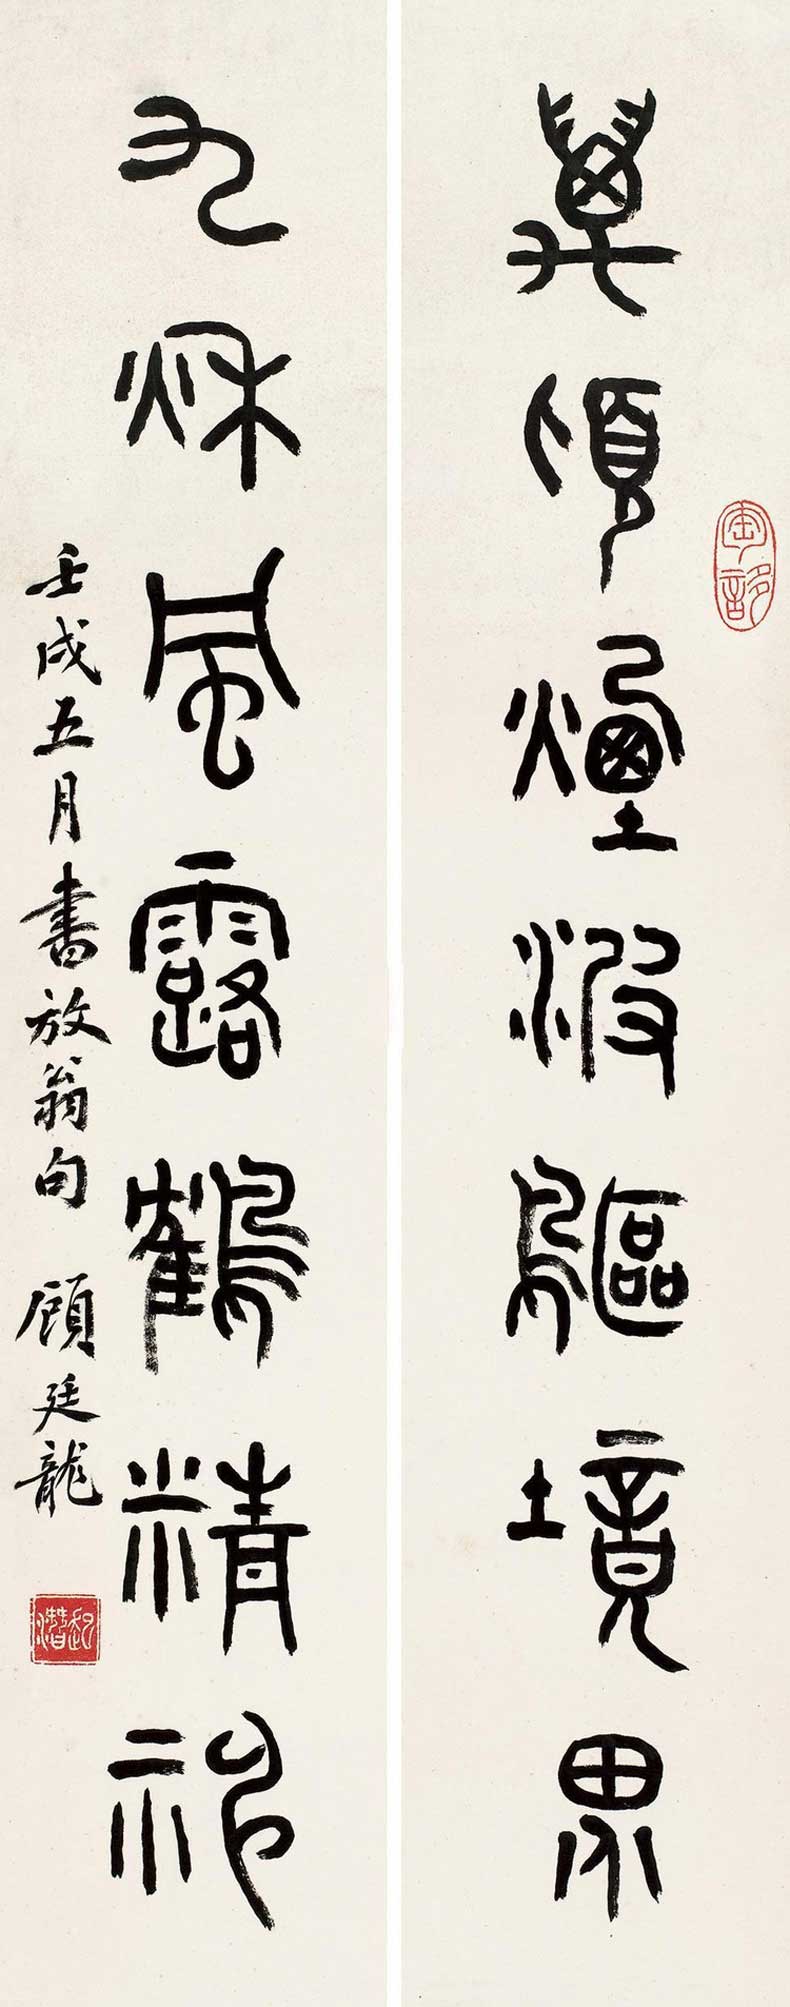 萬頃煙波鷗境界
九秋風露鶴精神
壬戌五月書放翁句 顧廷龍
起潛